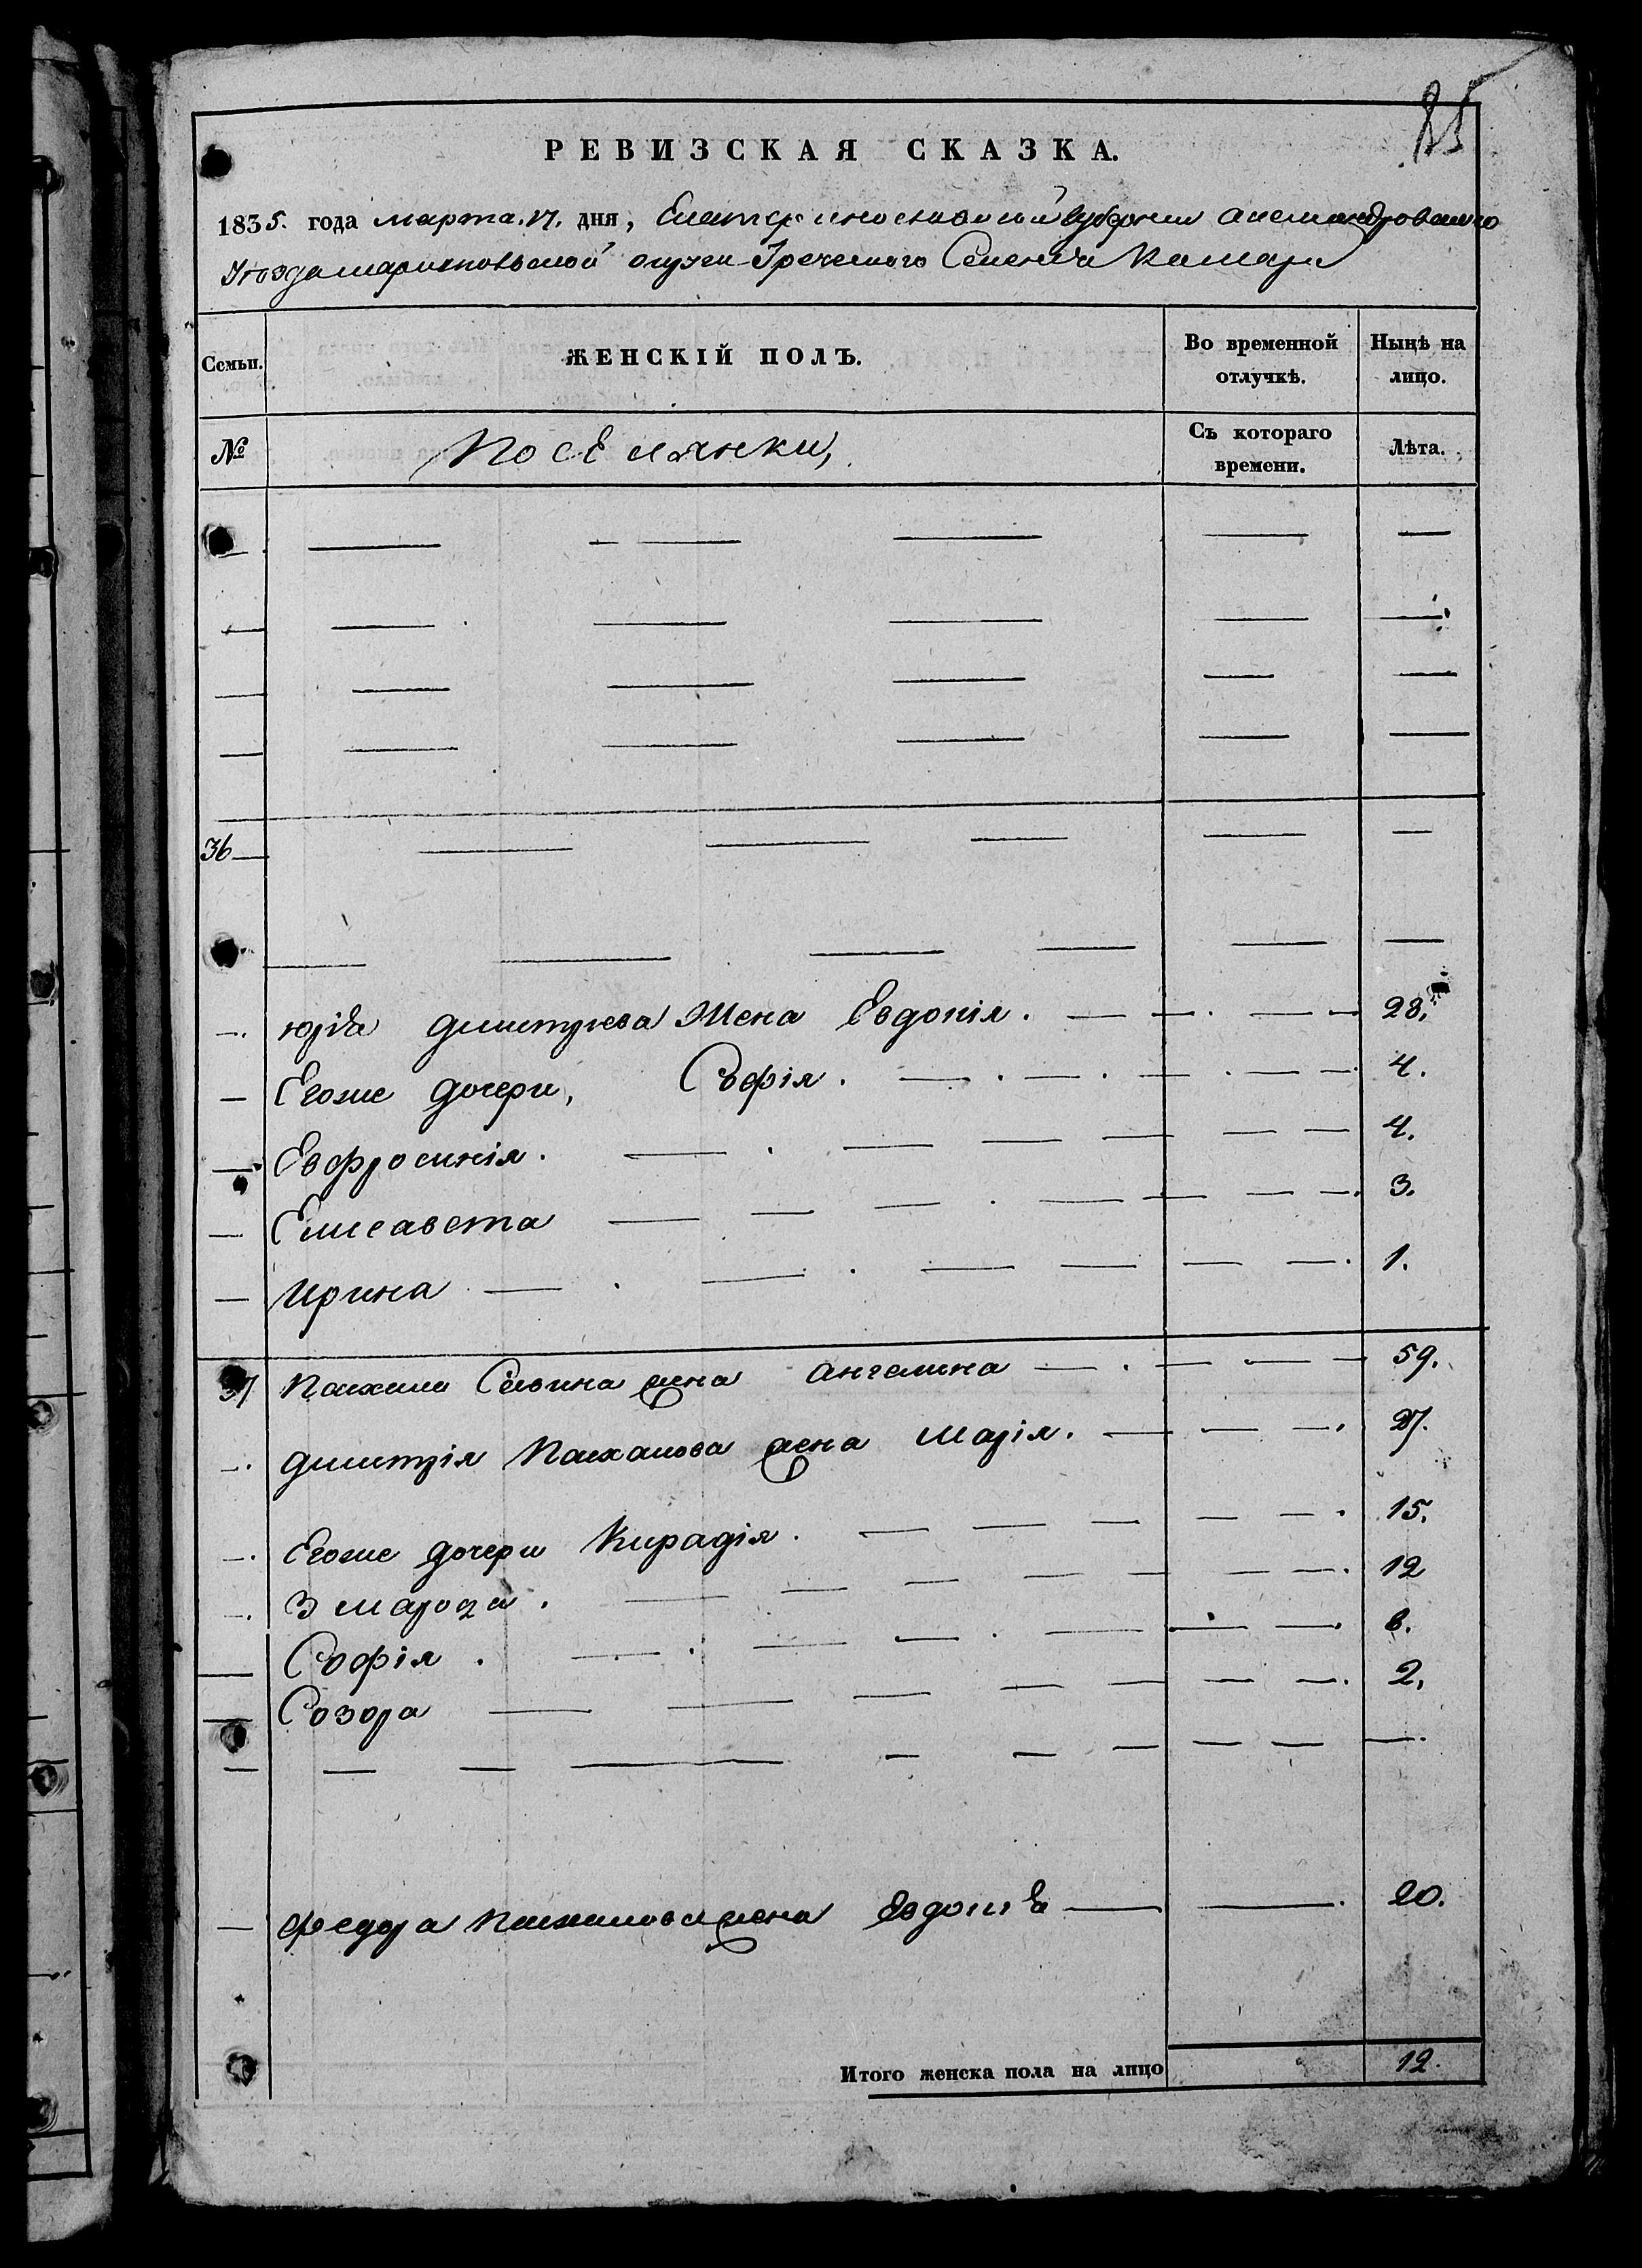 25
РЕВИЗСКАЯ СКАЗКА.
1835. года марта. 17. дня, Екатериославской губернии александровского
Уѣзда мариупольской округи Греческого Селения Камары
Семьи. ЖЕНСКІЙ ПОЛЪ. Во временной отлучкѣ. Нынѣ на лицо.
№ Поселянки, Съ котораго времени. Лѣта.
36
юрія дмитриева Жена Евдокія. 28.
Егоже дочери, Софія. 4.
Евфросинія. 4.
Елисавета 3.
Ирина 1.
37 Савина жена ангелина 59.
дмитрія жена Марія. 27.
Егоже дочери Кирадія. 15.
Змарода. 12
Софія. 6.
Созора 2.
федора жена Евдокія 20.
Итого женска пола на лицо 12.